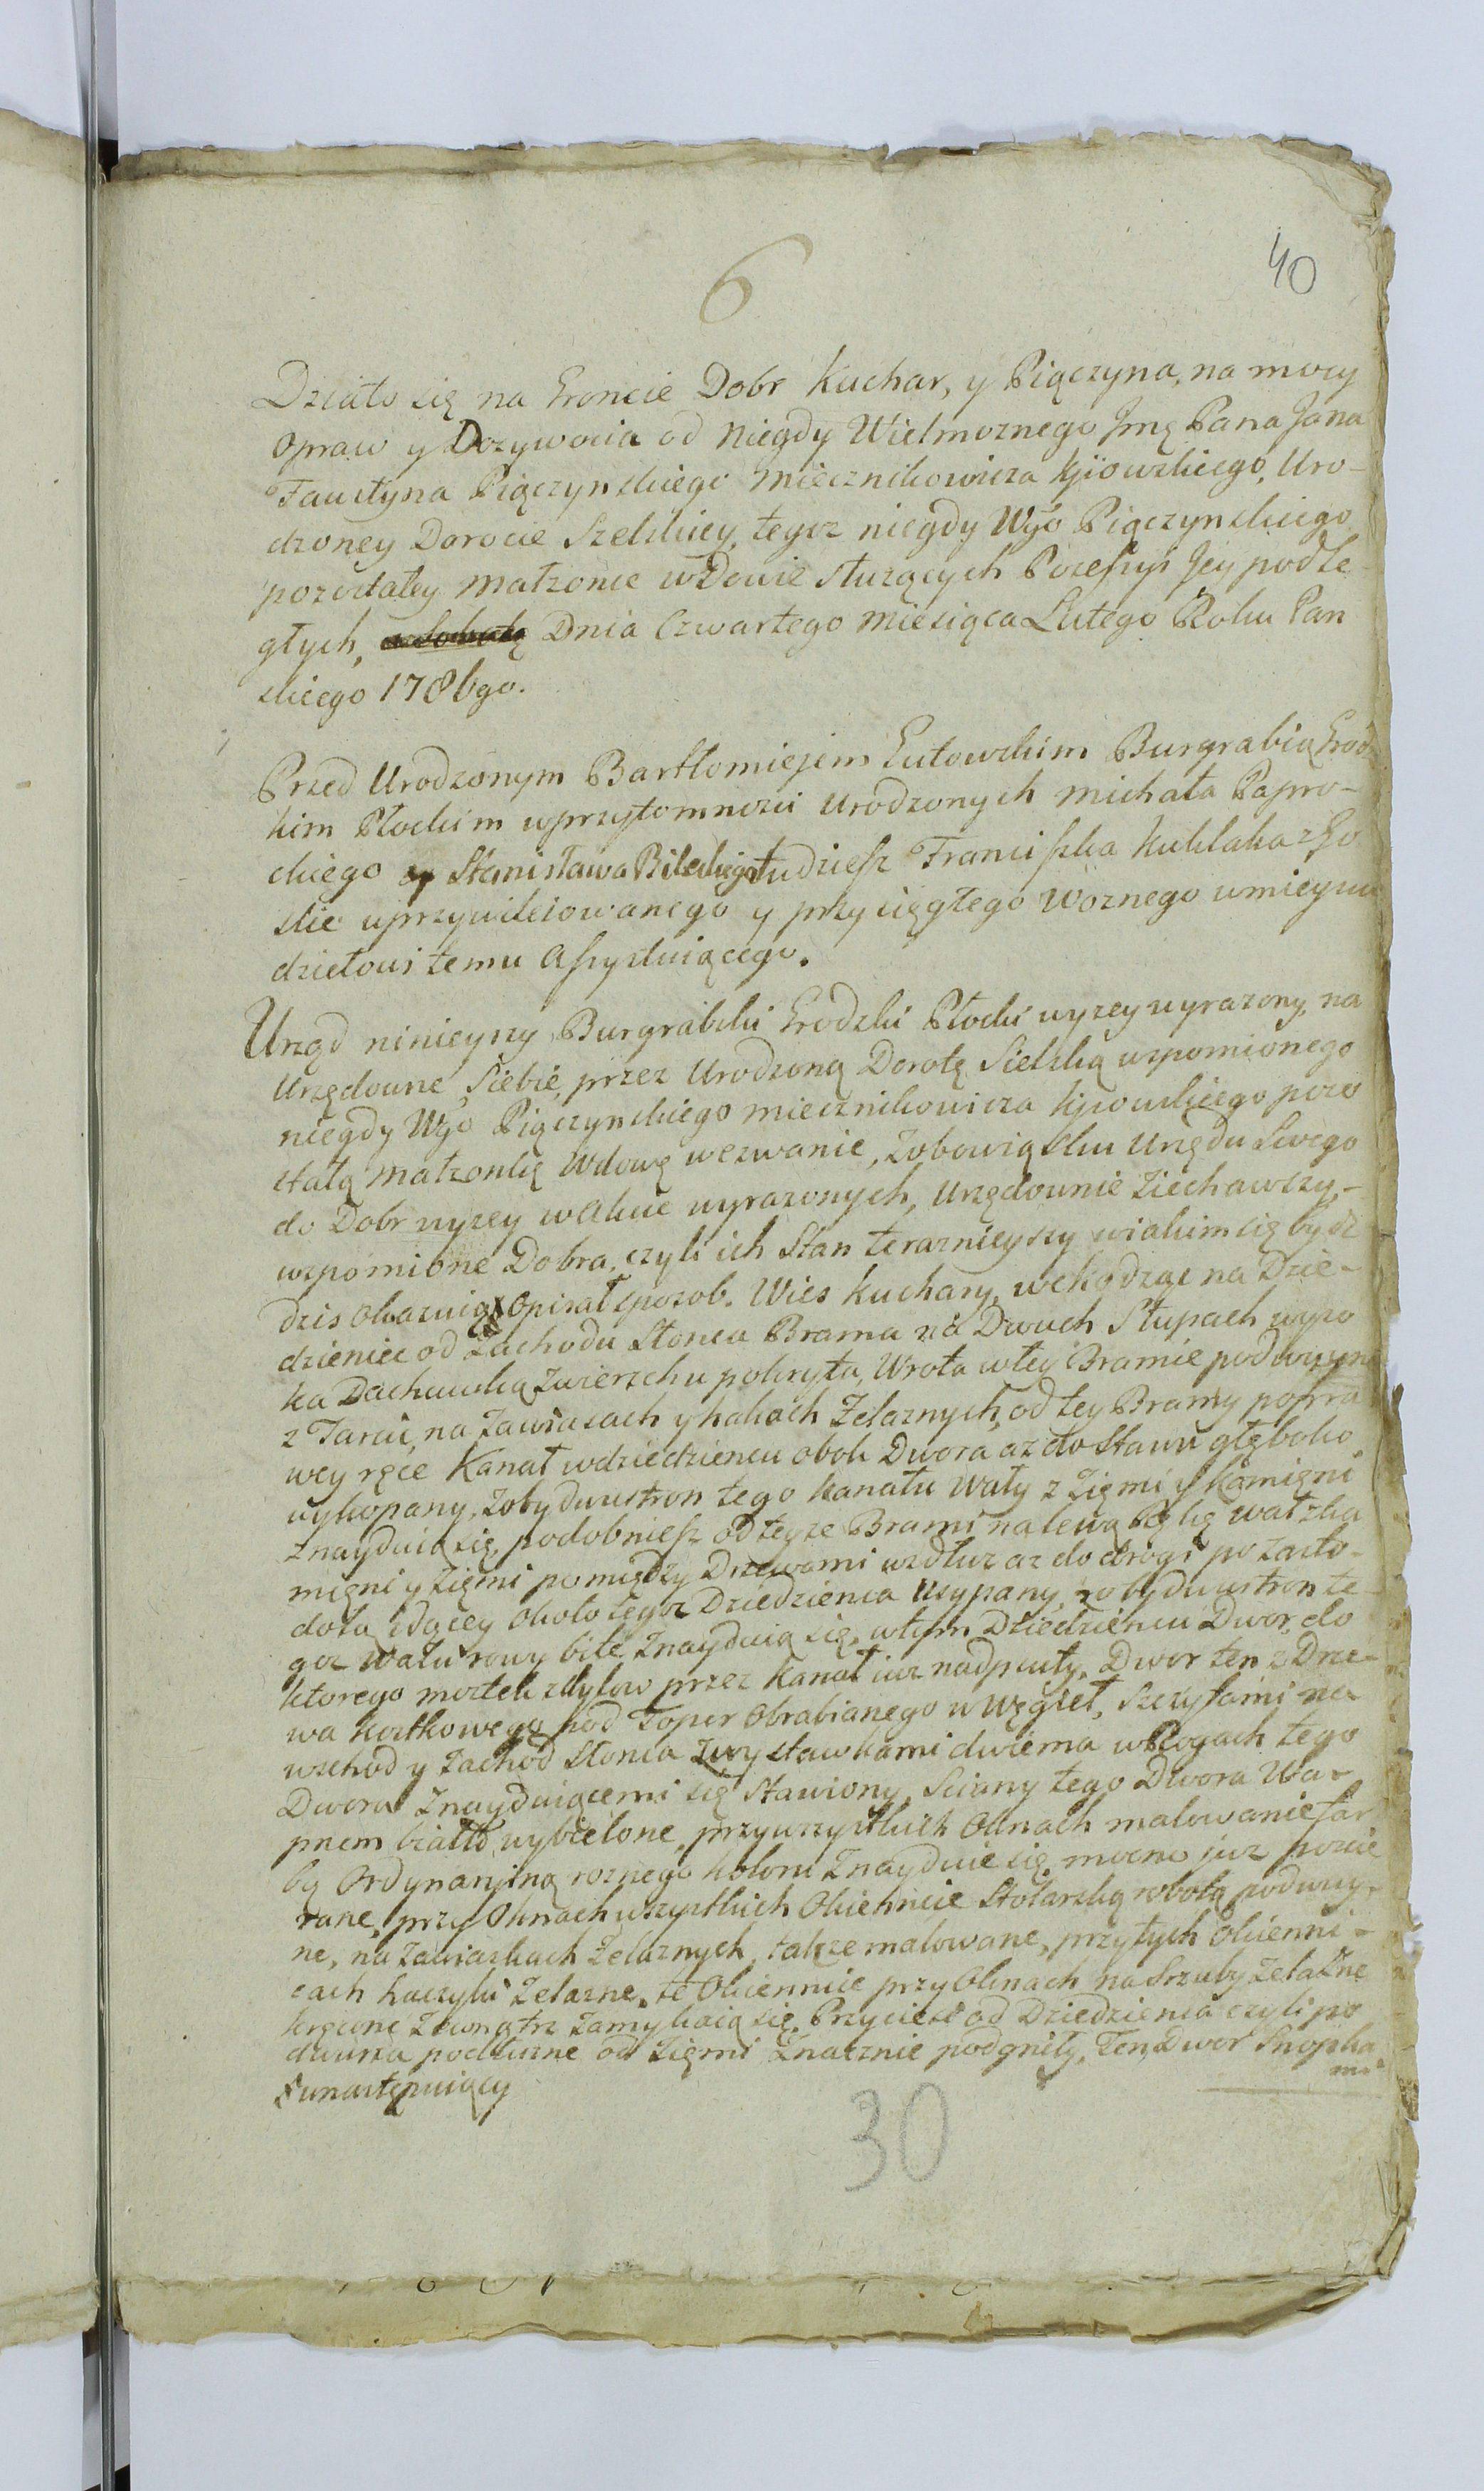 6
40
Działo się na Groncie Dobr Kuchar, y Piączyna, na mocy
Opraw y Dozywocia od Niegdy Wielmoznego Jmę Pana Jana
Faustyna Piączynskiego Miecznikowicza Kjiowskiego, Uro-
dzoney Dorocie Szelskiey, tegoz niegdy Wgo Piączynskiego
pozostałey Małzonce wdowie słuzących Possesyi Jey podle-
głych, Dnia Czwartego Miesiąca Lutego Roku Pan
skiego 1786go.
Przed Urodzonym Bartłomiejem Gutowskim Burgrabią Grodz
kim Płockim wprzytomnosci Urodzonych Michała Papro-
ckiego y Stanisława Bileckiego tudziesz Franciszka Kuklaka
skie uprzywileiowanego y przysięgłego Woznego ninieyszu
dziełowi temu Assystuiącego.
Urząd ninieyszy Burgrabski Grodzki Płocki wyzey wyrazony, na
Urzędowne Siebie, przez Urodzoną Dorotę Sielską wspomionego
niegdy Wgo Piączynskiego Miecznikowicza Kjiowskiego pozo
stałą Małzonkę Wdowę wezwanie, zobowiązku Urzędu Swego
do Dobr wyzey w Akcie wyrazonych, Urzędownie Ziechawszy,-
wspomione Dobra, czyli ich Stan terazniejszy wiakim się bydz
dzis okazuią Opisał sposob. Wies Kuchary, wchodząc na Dzie-
dzieniec od Zachodu Słonca Brama na Dwuch Słupach wyso
ka Dachawką Zwierzchu pokryta, Wrota w tey Bramie podwoyne
z Tarcic, na Zawiasach y hakach Zelaznych, od tey Bramy po pra
wey ręce Kanał wdziedziencu obok Dwora az do Stawu głęboko
wykopany, Zobydwustron tego Kanału Wały z Ziemi y Kamieni
znayduią się, podobniesz od teyze Brami na lewą Rękę wał z ka
mieni y Ziemi pomiędzy Drzewami wzdłuz az do drogi po Zasto-
dola idącey około tegoz Dziedzienca usypany, zobydwustron te
goz wału rowy bite znayduią się, w tym Dziedziencu Dwor, do
ktorego mostek z Dylow przez Kanał iuz nadpsuty, Dwor ten z Drze-
wa Kostkowego pod Topor Obrabianego w Węgieł, Szczytami na
wschod y Zachod Słonca Zwystawkami dwiema w Rogach tego
Dwora Znayduiącemi się Stawiony, Sciany tego Dwora Wa-
pnem biało wybielone, przy wszystkich Oknach malowanie far
bą Ordynaryiną roznego koloru Znayduie się, mocno juz poscie
rane, przy Oknach wszystkich Okiennice Stolarską robotą podwoy-
ne, na Zawiaskach Zelaznych, takze malowane, przy tych Okienni-
cach haczyki Zelazne, te Okiennice przy Oknach na Srzuby Zelazne
kręcone Zewnątrz Zamykaią się, Przyciesi od Dziedzienca czyli po
dworza podłuzne od Ziemi Znacznie podgniły, Ten Dwor Snopka
mi
wnastępuiący
30